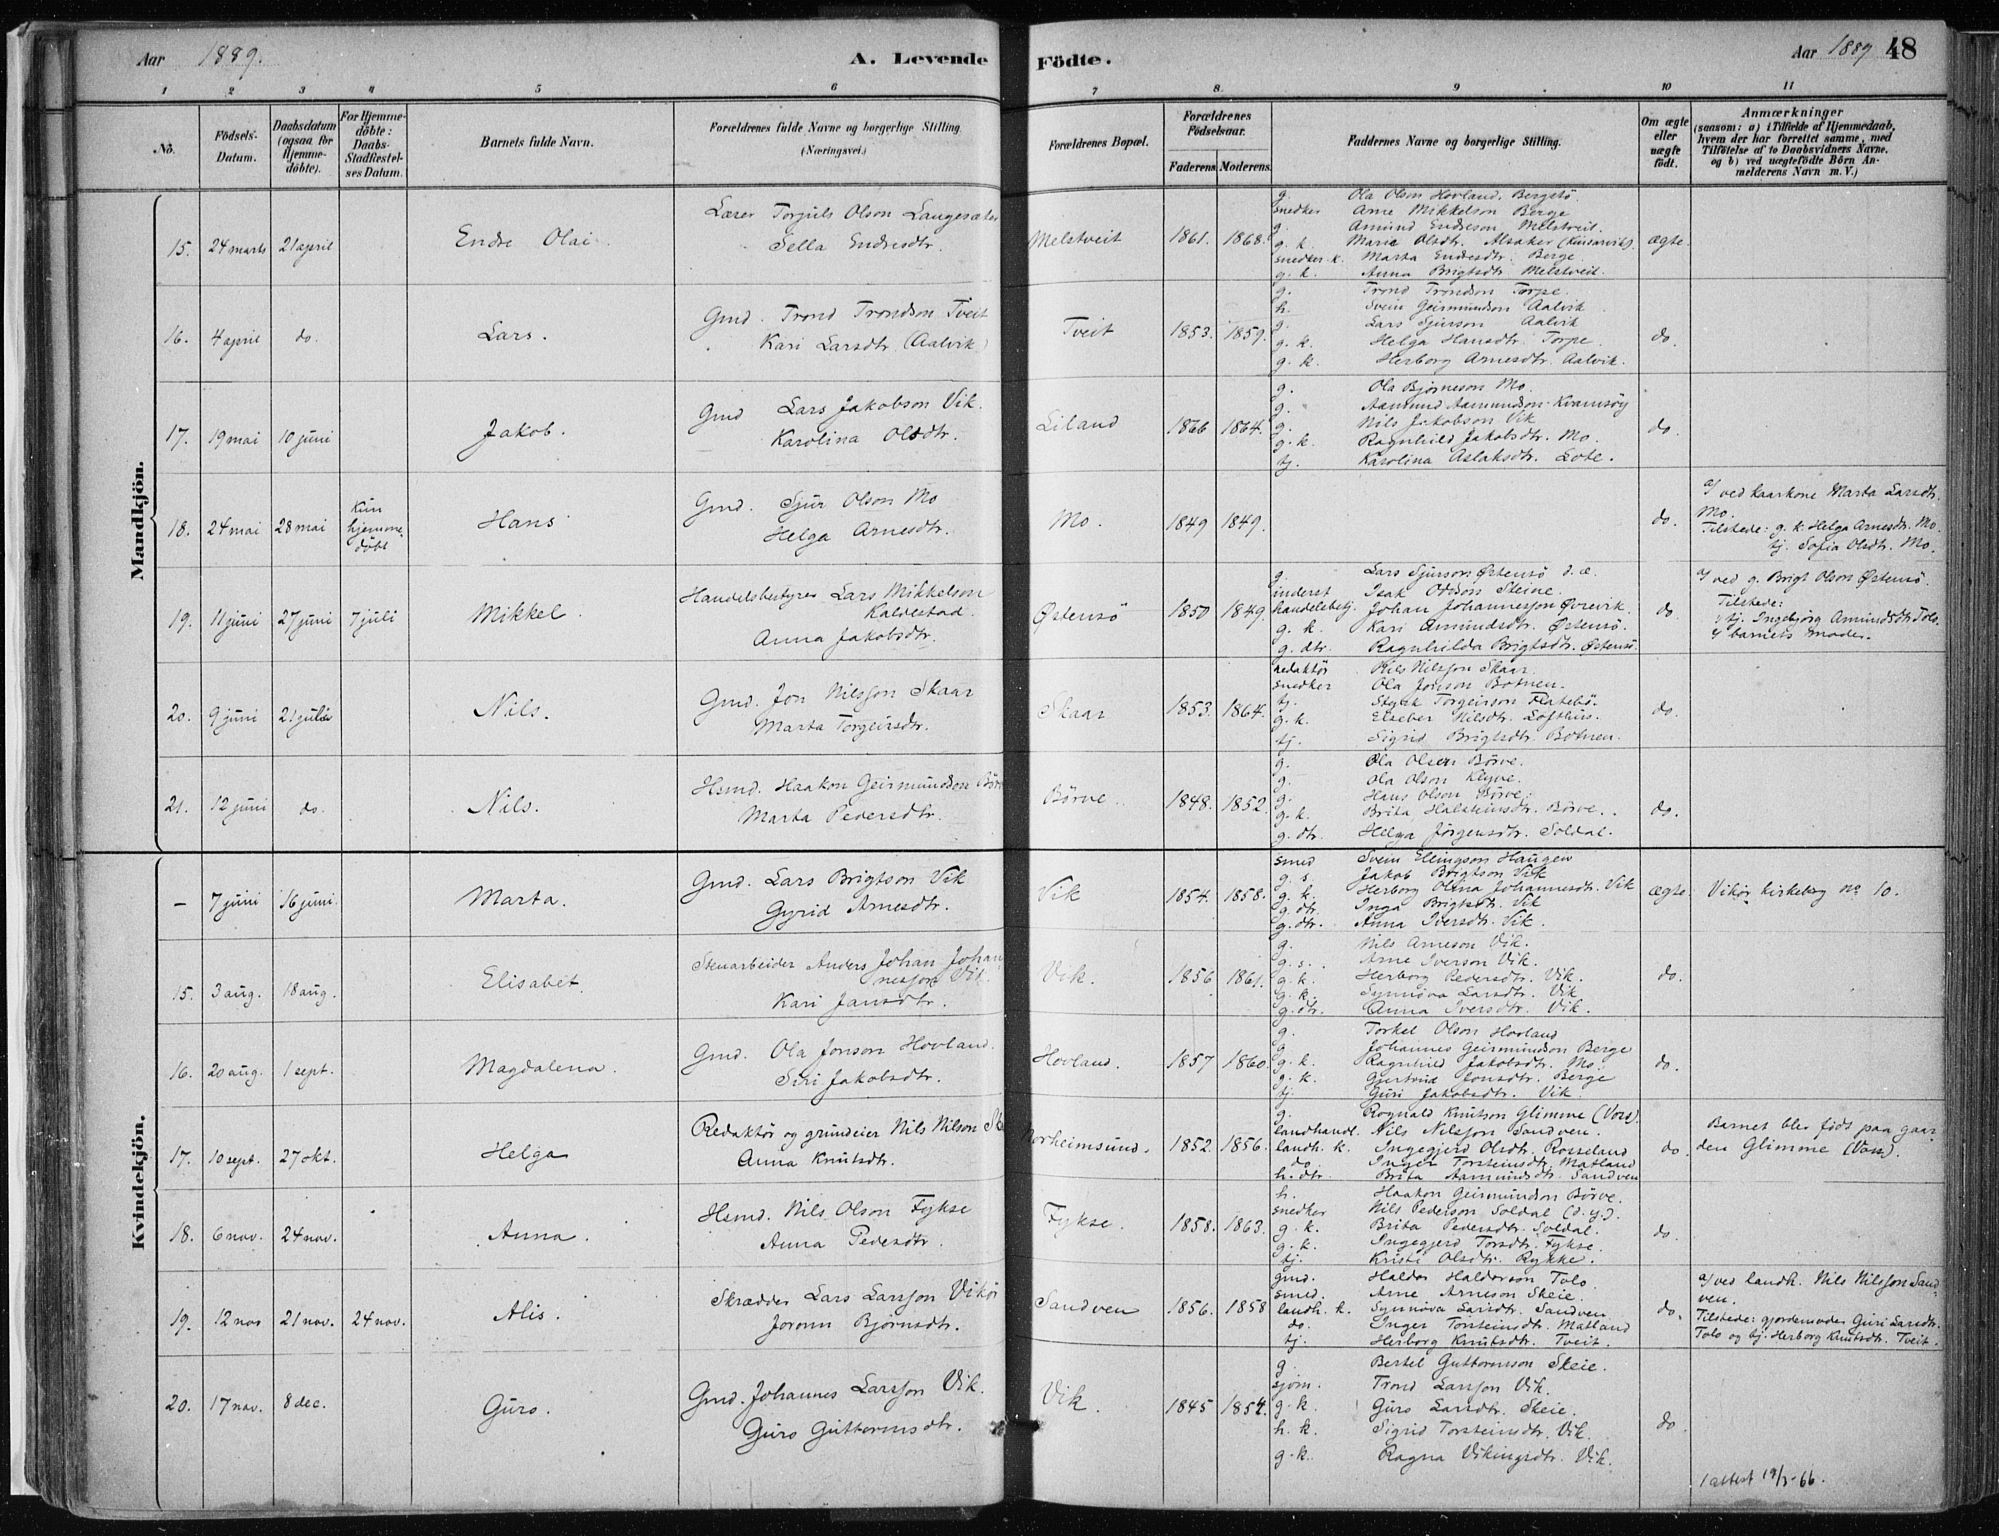 Aar 1889.
A. Levende
Födte.
Aar 1889
48
1 2 3 4 5 6 7 8 9 10 11
No.
Födsels-Datum.
Daabsdatum (ogsaa for Hjemmedöbte).
For Hjemmedöbte: Daabs-Stadfæstelses Datum.
Barnets fulde Navn.
Forældrenes fulde Navne og borgerlige Stilling.
(Næringsvei.)
Forældrenes Bopæl.
Forældrenes Födselsaar.
Faderens. Moderens.
Faddernes Navne og borgerlige Stilling.
Om ægte eller uægte födt.
Anmærkninger
(saasom: a) i Tilfælde af Hjemmedaab, hvem der har forrettet samme, med Tilföielse af to Daabsvidners Navne, og b) ved uægtefödte Börn Anmelderens Navn m. V.)
Mandkjön.
15. 24 marts 21 april
Endre Olai.
Lærer Torjuls Olson Langesæter
Sella Endresdtr.
Melstveit 1861. 1868.
g. Ola Olson Hovland, Bergstö
snedker Arne Mikkelson Berge
g. Amund Endreson Melstveit.
g. k. Marie Olsdtr. Alsaker (Kinsarvik).
snedker k. Marta Endresdtr. Berge.
g. k. Anna Brigtsdtr Melstveit.
ægte
16. 4 april do.
Lars.
Gmd. Trond Trondson Tveit
Kari Larsdtr (Aalvik)
Tveit 1853. 1859.
g. Trond Trondson Torpe.
h. Svein Geirmundson Aalvik
g. Lars Sjurson Aalvik
g. k. Helga Hansdtr. Torpe.
g. k. Herborg Arnesdtr. Aalvik.
do.
17. 19 mai 10 juni
Jakob.
Gmd Lars Jakobson Vik.
Karolina Olsdtr.
Liland 1866 1864.
g. Ola Björneson Mo.
g. Aamund Aamundson Kvamsöy
g. Nils Jakobson Vik
g. k. Ragnhild Jakobsdtr. Mo.
tj. Karolina Aslaksdtr. Lote.
do.
18. 24 mai 28 mai Kun hjemmedöbt
Hans
Gmd. Sjur Olson Mo
Helga Arnesdtr.
Mo. 1849 1849.
do.
a/ ved kaarkone Marta Larsdtr.
Mo.
Tilstede: g. k. Helga Arnesdtr. Mo.
tj. Sofia Olsdtr. Mo.
19. 11 juni 27 juni 7 juli
Mikkel.
Handelsbestyrer Lars Mikkelson
Kaldestad
Anna Jakobsdtr.
Østensö 1850 1849.
g. Lars Sjurson Østensö d. æ.
Isak Olson Steine.
handelsbetj. Johan Johannesson Øvrevik.
g. k. Kari Amundsdtr. Østensö.
g. dtr. Ragnhilda Brigtsdtr. Østensö.
do
a/ ved g. Brigt Olson Østensö.
Tilstede:
tj. Ingebjörg Amundsdtr Tolo.
barnets moder.
20. 9 juni 21 juli
Nils.
Gmd. Jon Nilsson Skaar
Marta Torgeirsdtr.
Skaar 1853. 1864.
redaktör Nils Nilsson Skaar
snedker Ola Jonson Botnen.
tj. Styrk Torgeirson Flatebö.
g. k. Elseber Nilsdtr. Lofthus.
tj. Sigrid Brigtsdtr. Botnen.
do.
21. 12 juni do.
Nils.
Hsmd. Haakon Geirmundson Börve
Marta Pedersdtr.
Börve. 1848. 1852.
g. Ola Olsen Börve.
g. Ola Olson Klyve.
g. Hans Olson Börve.
g. k. Brita Halsteinsdtr. Börve.
g. dtr. Helga Jörgensdtr. Soldal.
do.
Kvindekjön.
– 7 juni 16 juni.
Marta.
Gmd. Lars Brigtson Vik
Gyrid Arnesdtr.
Vik 1854. 1858.
smed Svein Ellingson Haugen
g. s. Jakob Brigtson Vik
g. k. Herborg Olina Johannesdtr. Vik
g. dtr. Inga Brigtsdtr. Vik
g. dtr. Anna Iversdtr. Vik.
ægte.
Vikör kirkebog no 10.
15. 3 aug. 18 aug.
Elisabet.
Stenarbeider Anders Johan Johan
nesson Vik.
Kari Jansdtr.
Vik. 1856 1861.
g. Nils Arneson Vik.
g. s. Arne Iverson Vik.
g. k. Herborg Pedersdtr. Vik.
g. k. Synnöva Larsdtr. Vik
g. dtr. Anna Iversdtr. Vik.
do.
16. 20 aug. 1 sept.
Magdalena.
Gmd. Ola Jonson Hovland.
Siri Jakobsdtr.
Hovland. 1857 1860.
g. Torkel Olson Hovland
g. Johannes Geirmundson Berge
g. k. Ragnhild Jakobsdtr. Mo.
g. k. Gjertrud Jonsdtr. Berge
tj. Guri Jakobsdtr. Vik.
do.
17. 10 sept. 27 okt.
Helga
Redaktör og grundeier Nils Nilson
Anna Knutsdtr.
Norheimsund. 1852. 1856.
g. Rognald Knutson Glimme (Vos).
landhandl. Nils Nilsson Sandven.
landh. k. Ingegjerd Olsdtr. Rosseland
do. Inger Torsteinsdtr. Matland
h. dtr. Brita Aamundsdtr. Sandven
do.
Barnet blev födt paa gaar
den Glimme (Voss).
18. 6 nov. 24 nov.
Anna.
Hsmd. Nils Olson Fykse
Anna Pedesdtr.
Fykse. 1858. 1863.
h. Haakon Geirmundson Börve.
snedker Nils Pederson Soldal (d. y.).
g. k. Brita Pedersdtr. Soldal.
g. k. Ingegjerd Torsdtr. Fykse.
tj. Kristi Olsdtr. Rykke.
do.
19. 12 nov 21 nov. 24 nov.
Alis.
Skrædder Lars Larsson Vikör
Jorunn Björnsdtr.
Sandven 1856. 1858
gmd. Haldor Haldorson Tolo
smed. Arne Arneson Skeie.
landh. k. Synnöva Larsdtr. Sandven
do. Inger Torsteinsdtr. Matland
tj. Herborg Knutsdtr. Tveit.
do.
a/ ved landh. Nils Nilsson Sand
ven.
Tilstede: gjordemoder Guri Larsdtr.
Tolo og tj. Herborg Knutsdtr. Tveit.
20. 17 nov. 8 dec.
Guro.
Gmd. Johannes Larsson Vik.
Guro Guttormsdtr.
Vik. 1845 1854.
g. Bertel Guttormson Skeie.
sjöm. Trond Larsson Vik.
g. k. Guro Larsdtr. Skeie.
h. k. Sigrid Torsteinsdtr. Vik.
g. k. Ragna Vikingsdtr. Vik.
do
1 attest 19/3-66.